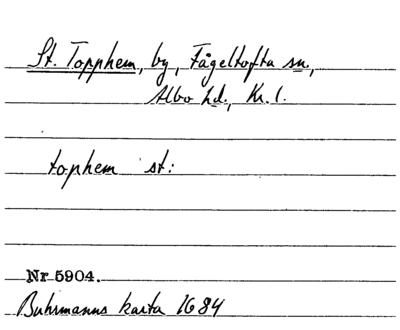 St. Topphem, by, Fågeltofta sn.,
Albo hd., Kr. l.
tophem st:
Nr 5904.
Buhrmanns karta 1684